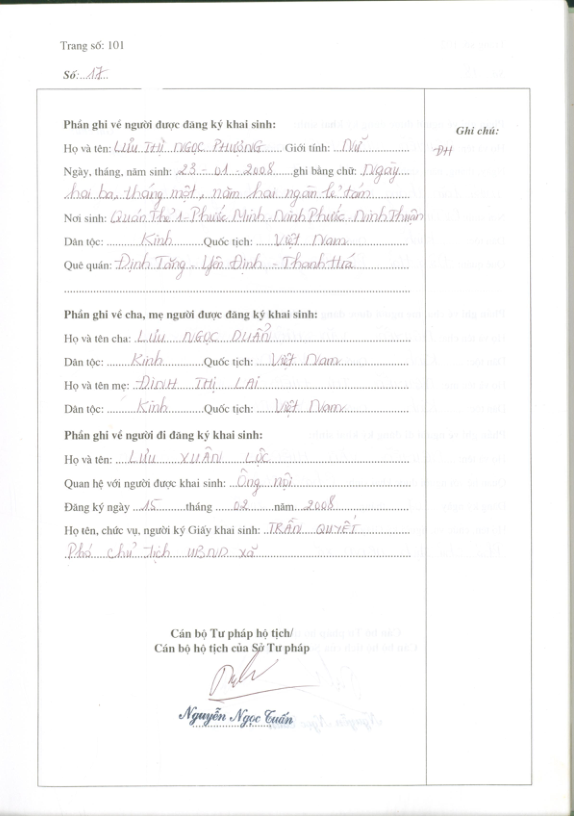 Trang số: 101
Số: 17
Phần ghi về người được đăng ký khai sinh:
Ghi chú:
Họ và tên: LƯU THỊ NGỌC PHƯỢNG Giới tính: NỮ
ĐH
Ngày, tháng, năm sinh: 23 - 01 - 2008 ghi bằng chữ: Ngày
hai ba, tháng một, năm hai ngàn lẻ tám
Nơi sinh: Quán Thẻ 1 - Phước Minh Ninh Phước Ninh Thuận
Dân tộc: Kinh Quốc tịch: Việt Nam
Quê quán: Định Tăng - Yên Định - Thanh Hoá
Phần ghi về cha, mẹ người được đăng ký khai sinh:
Họ và tên cha: LƯU NGỌC DUẨN
Dân tộc: Kinh Quốc tịch: Việt Nam
Họ và tên mẹ: ĐINH THỊ LAI
Dân tộc: Kinh Quốc tịch: Việt Nam
Phần ghi về người đi đăng ký khai sinh:
Họ và tên: LƯU XUÂN LỘC
Quan hệ với người được khai sinh: Ông nội
Đăng ký ngày 15 tháng 02 năm 2008
Họ tên, chức vụ, người ký Giấy khai sinh: TRẦN QUYẾT
Phó chủ tịch UBND xã
Cán bộ Tư pháp hộ tịch/
Cán bộ hộ tịch của Sở Tư pháp
Nguyễn Ngọc Tuấn